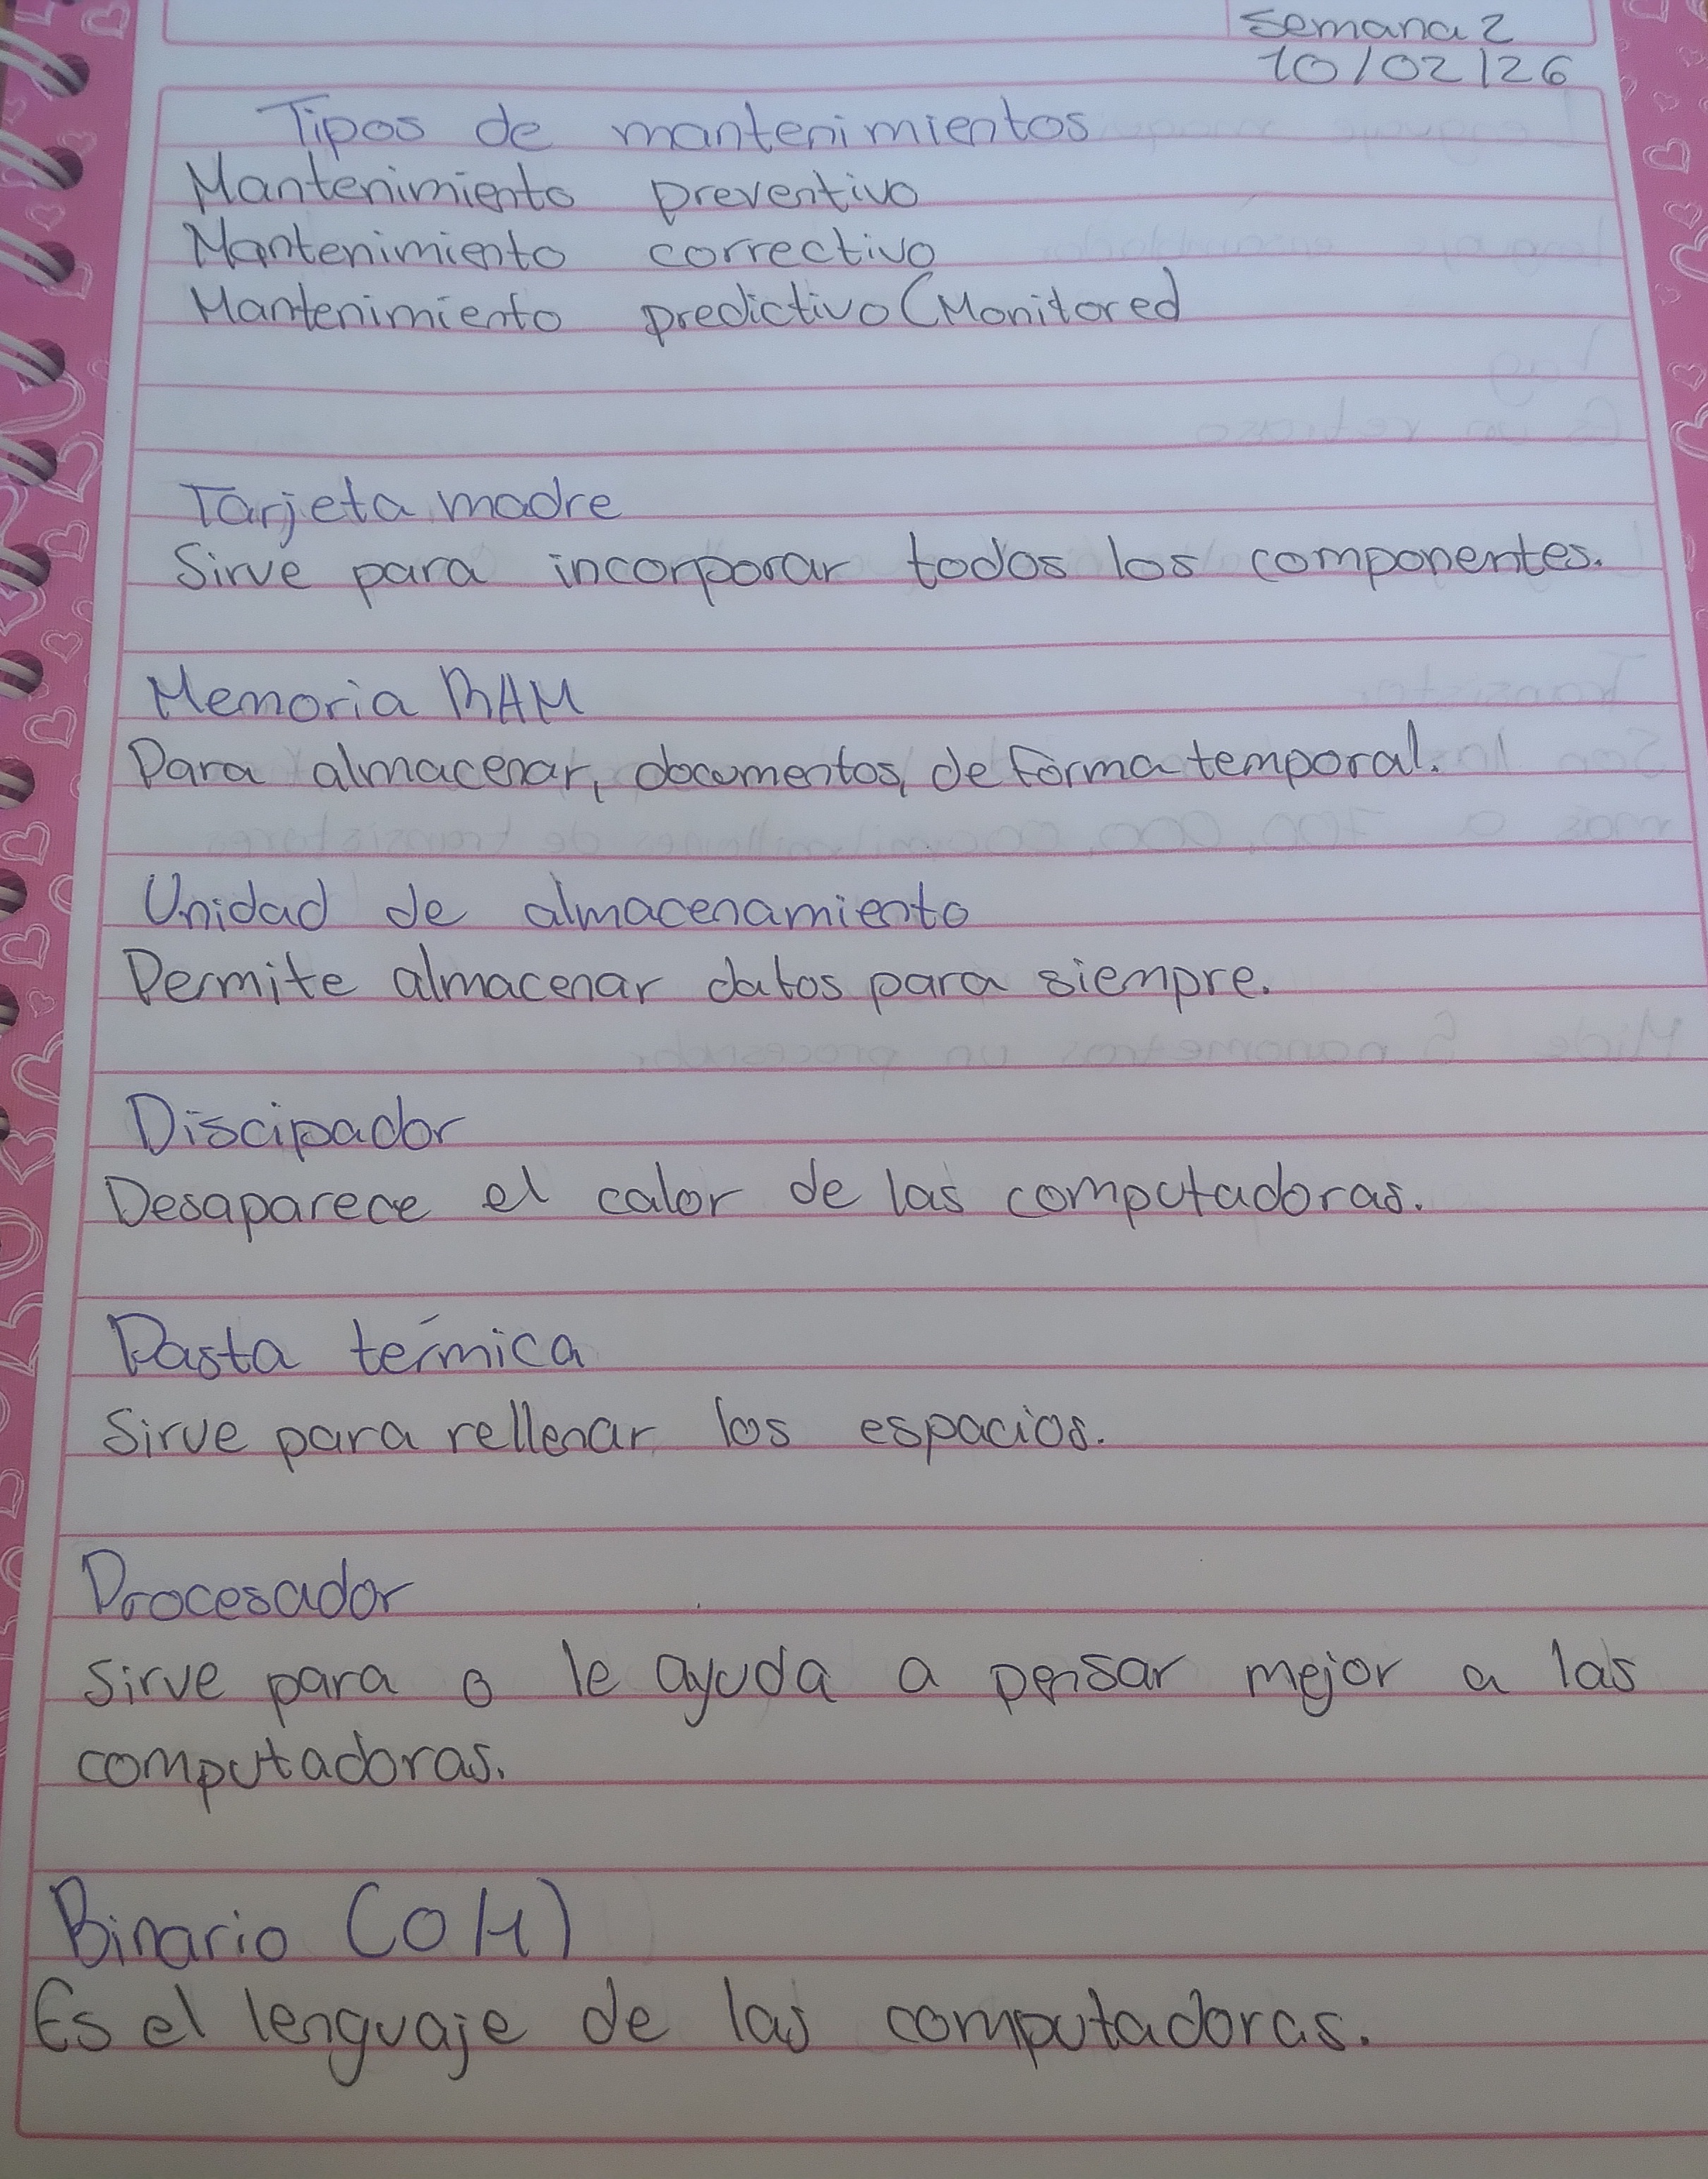 Semana 2
10/02/26
Tipos de mantenimientos
Mantenimiento preventivo
Mantenimiento correctivo
Mantenimiento predictivo (Monitored
Tarjeta madre
Sirve para incorporar todos los componentes.
Memoria RAM
Para almacenar, documentos, de forma temporal.
Unidad de almacenamiento
Permite almacenar datos para siempre.
Discipador
Desaparece el calor de las computadoras.
Pasta térmica
Sirve para rellenar los espacios.
Procesador
Sirve para o le ayuda a pensar mejor a las
computadoras.
Binario (0
Es el lenguaje de las computadoras.